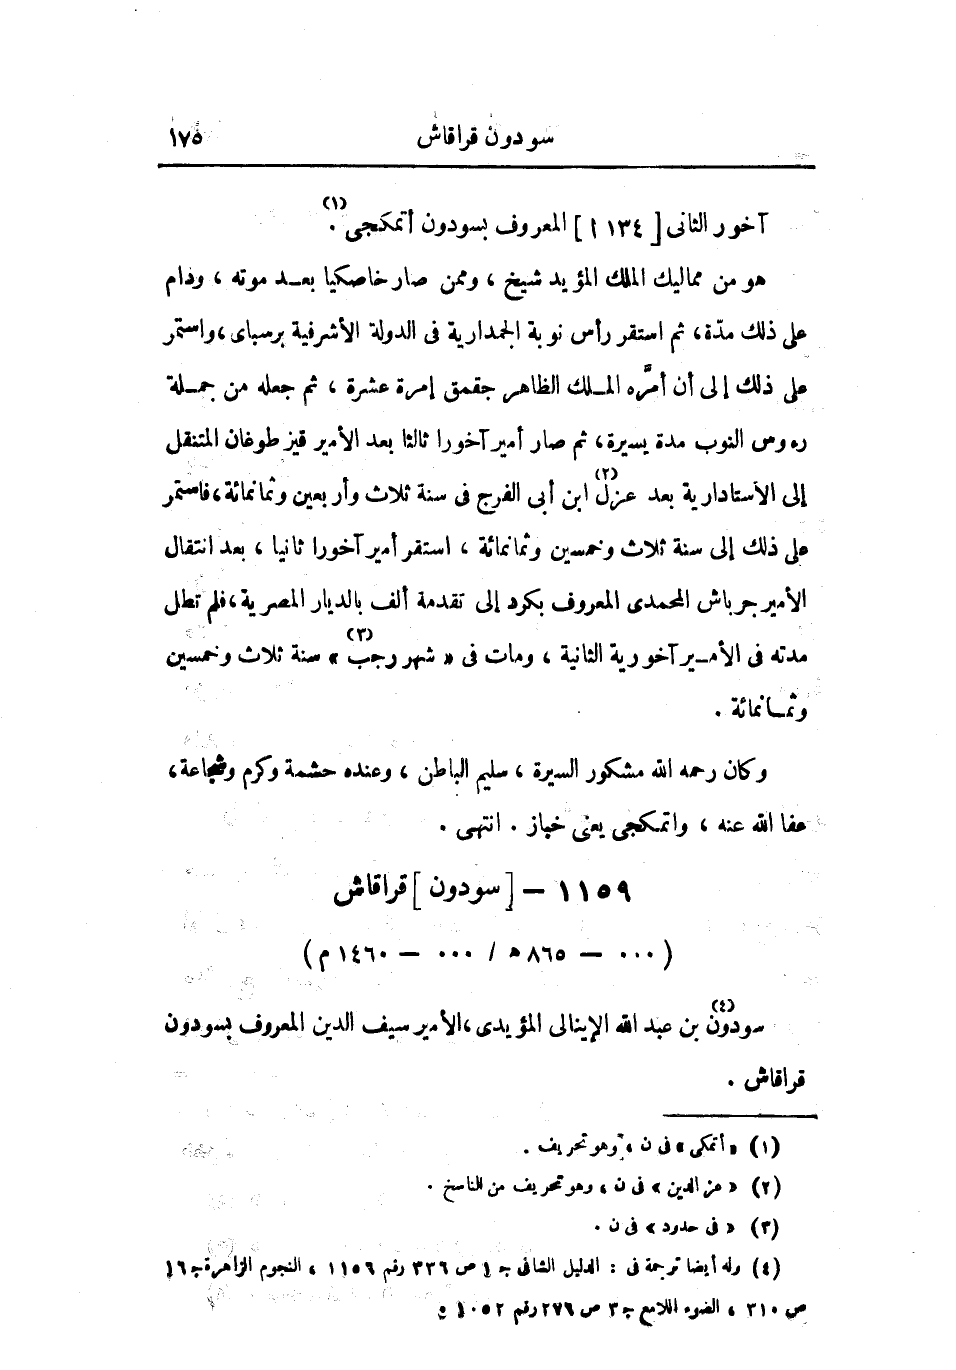 سودون قراقاش
١٧٥
آخور الثانى [ ١٣٤ أ ] المعروف بسودون أتمكجى (١) .
هو من مماليك الملك المؤيد شيخ ، وممن صار خاصكيا بعد موته ، ودام
على ذلك مدّة ، ثم استقر رأس نوبة الجمدارية فى الدولة الأشرفية برسباى ، واستمر
على ذلك إلى أن أمّره الملك الظاهر جقمق إمرة عشرة ، ثم جعله من جملة
رءوس النوب مدة يسيرة ، ثم صار أمير آخورا ثالثا بعد الأمير قيز طوغان المتنقل
إلى الأستادارية بعد عزل (٢) ابن أبى الفرج فى سنة ثلاث وأربعين وثمانمائة ، فاستمر
على ذلك إلى سنة ثلاث وخمسين وثمانمائة ، استقر أمير آخورا ثانيا ، بعد انتقال
الأمير جرباش المحمدى المعروف بكرد إلى تقدمة ألف بالديار المصرية ، فلم تطل
مدته فى الأمير آخورية الثانية ، ومات فى « شهر رجب (٣) » سنة ثلاث وخمسين
وثمانمائة .
وكان رحمه الله مشكور السيرة ، سليم الباطن ، وعنده حشمة وكرم وشجاعة ،
عفا الله عنه ، واتمكجى يعنى خباز . انتهى .
١١٥٩ – [ سودون ] قراقاش
( ٠٠٠ – ٨٦٥ هـ / ٠٠٠ – ١٤٦٠ م )
سودون (٤) بن عبد الله الإينالى المؤيدى ، الأمير سيف الدين المعروف بسودون
قراقاش .
(١) « أتمكى » فى ن ، وهو تحريف .
(٢) « عز الدين » فى ن ، وهو تحريف من الناسخ .
(٣) « فى حدود » فى ن .
(٤) وله أيضا ترجمة فى : الدليل الشافى جـ ١ ص ٣٣٦ رقم ١١٥٦ ، النجوم الزاهرة جـ ١٦
ص ٣١٠ ، الضوء اللامع جـ ٣ ص ٢٧٦ رقم ١٠٥٢ .